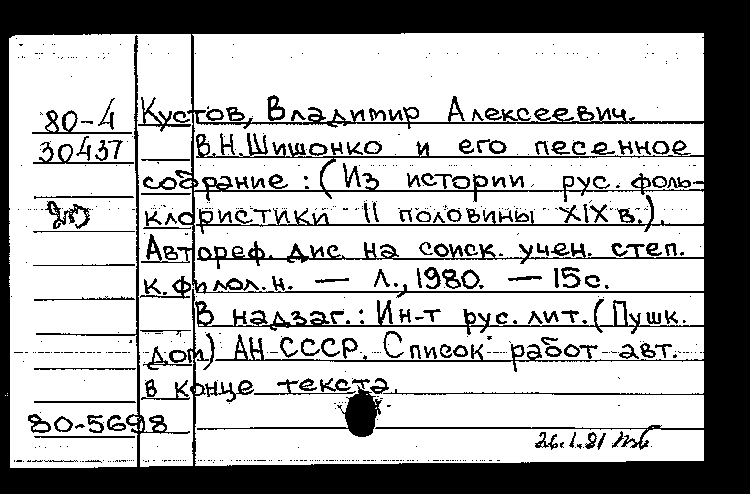 80-4 Кустов, Владимир Алексеевич.
30437 В.Н.Шишонко и его песенное
собрание : (Из истории рус. фоль-
клористики II половины XIX в.).
Автореф. дис. на соиск. учен. степ.
к. филол. н. — Л., 1980. — 15с.
В надзаг.: Ин-т рус. лит. (Пушк.
дом) АН СССР. Список работ авт.
в конце текста.
80-5698
26.1.81